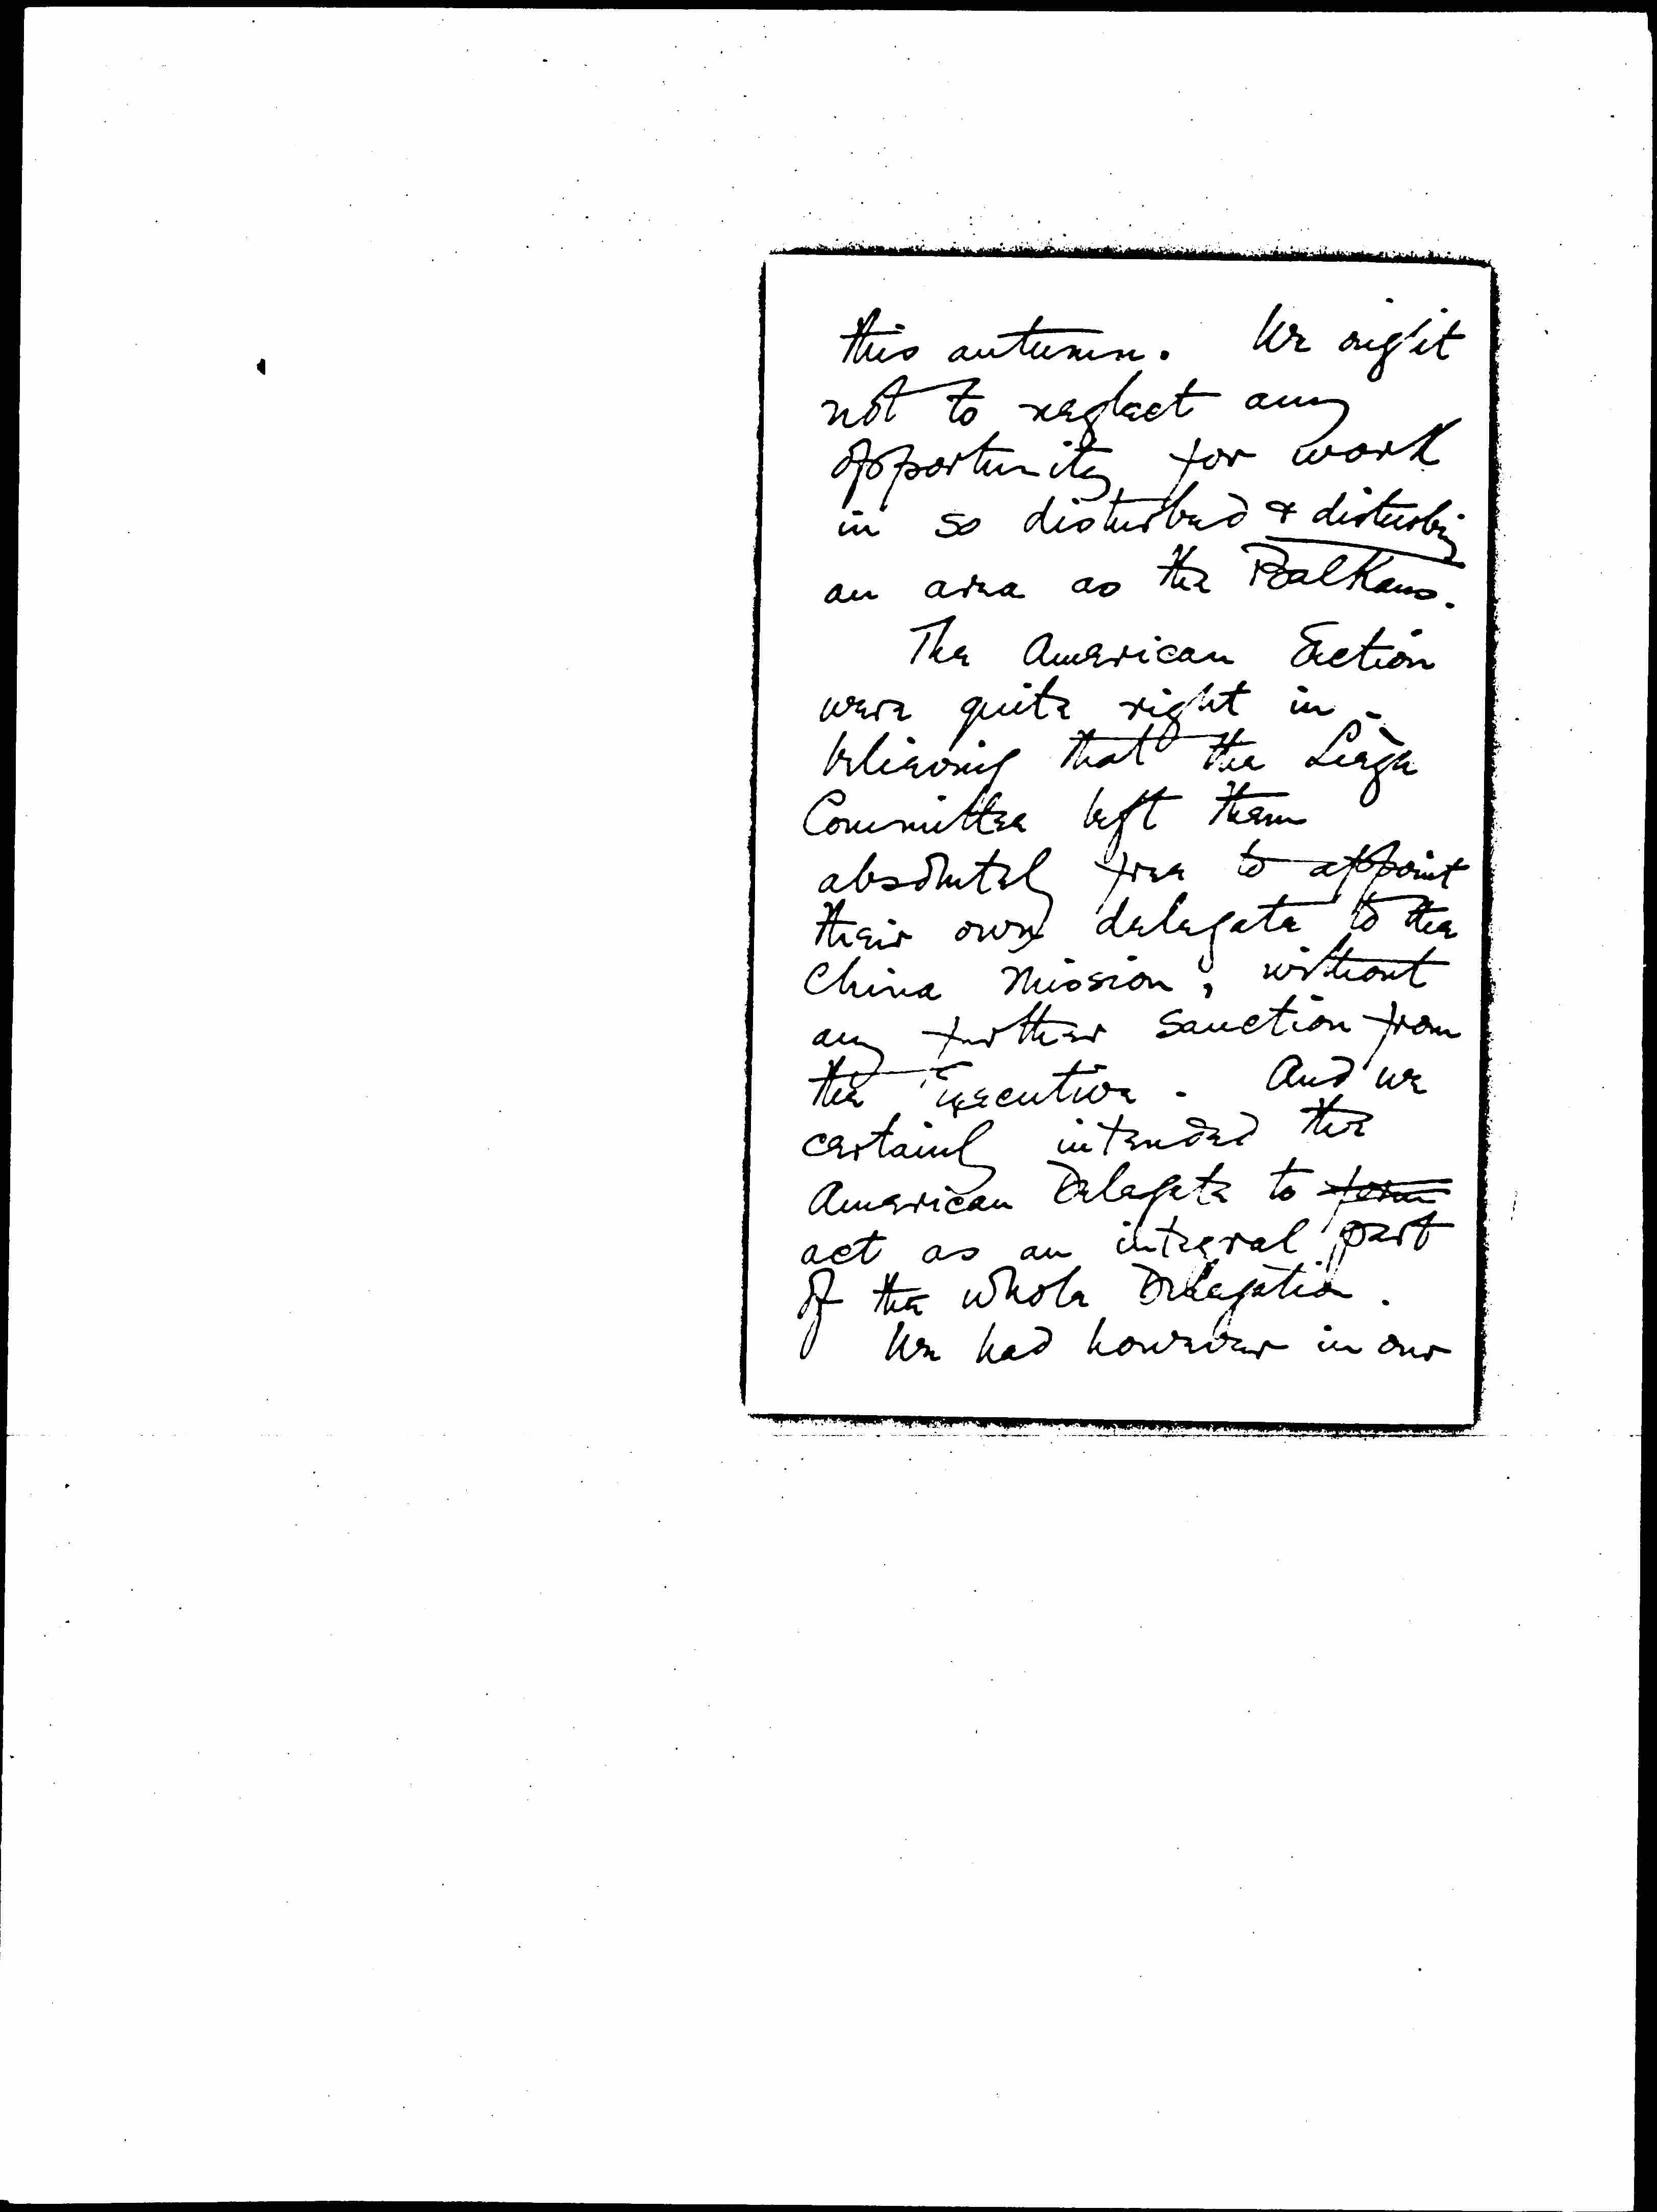 this autumn. We ought
not to neglect any
opportunity for work
in so disturbed & disturbing
an area as the Balkans.
The American Section
were quite right in
believing that the Liège
Committee left them
absolutely free to appoint
their own delegate to the
China Mission, without
any further sanction from
the Executive. And we
certainly intended the
American Delegate to form
act as an integral part
of the whole Delegation.
We had however in our